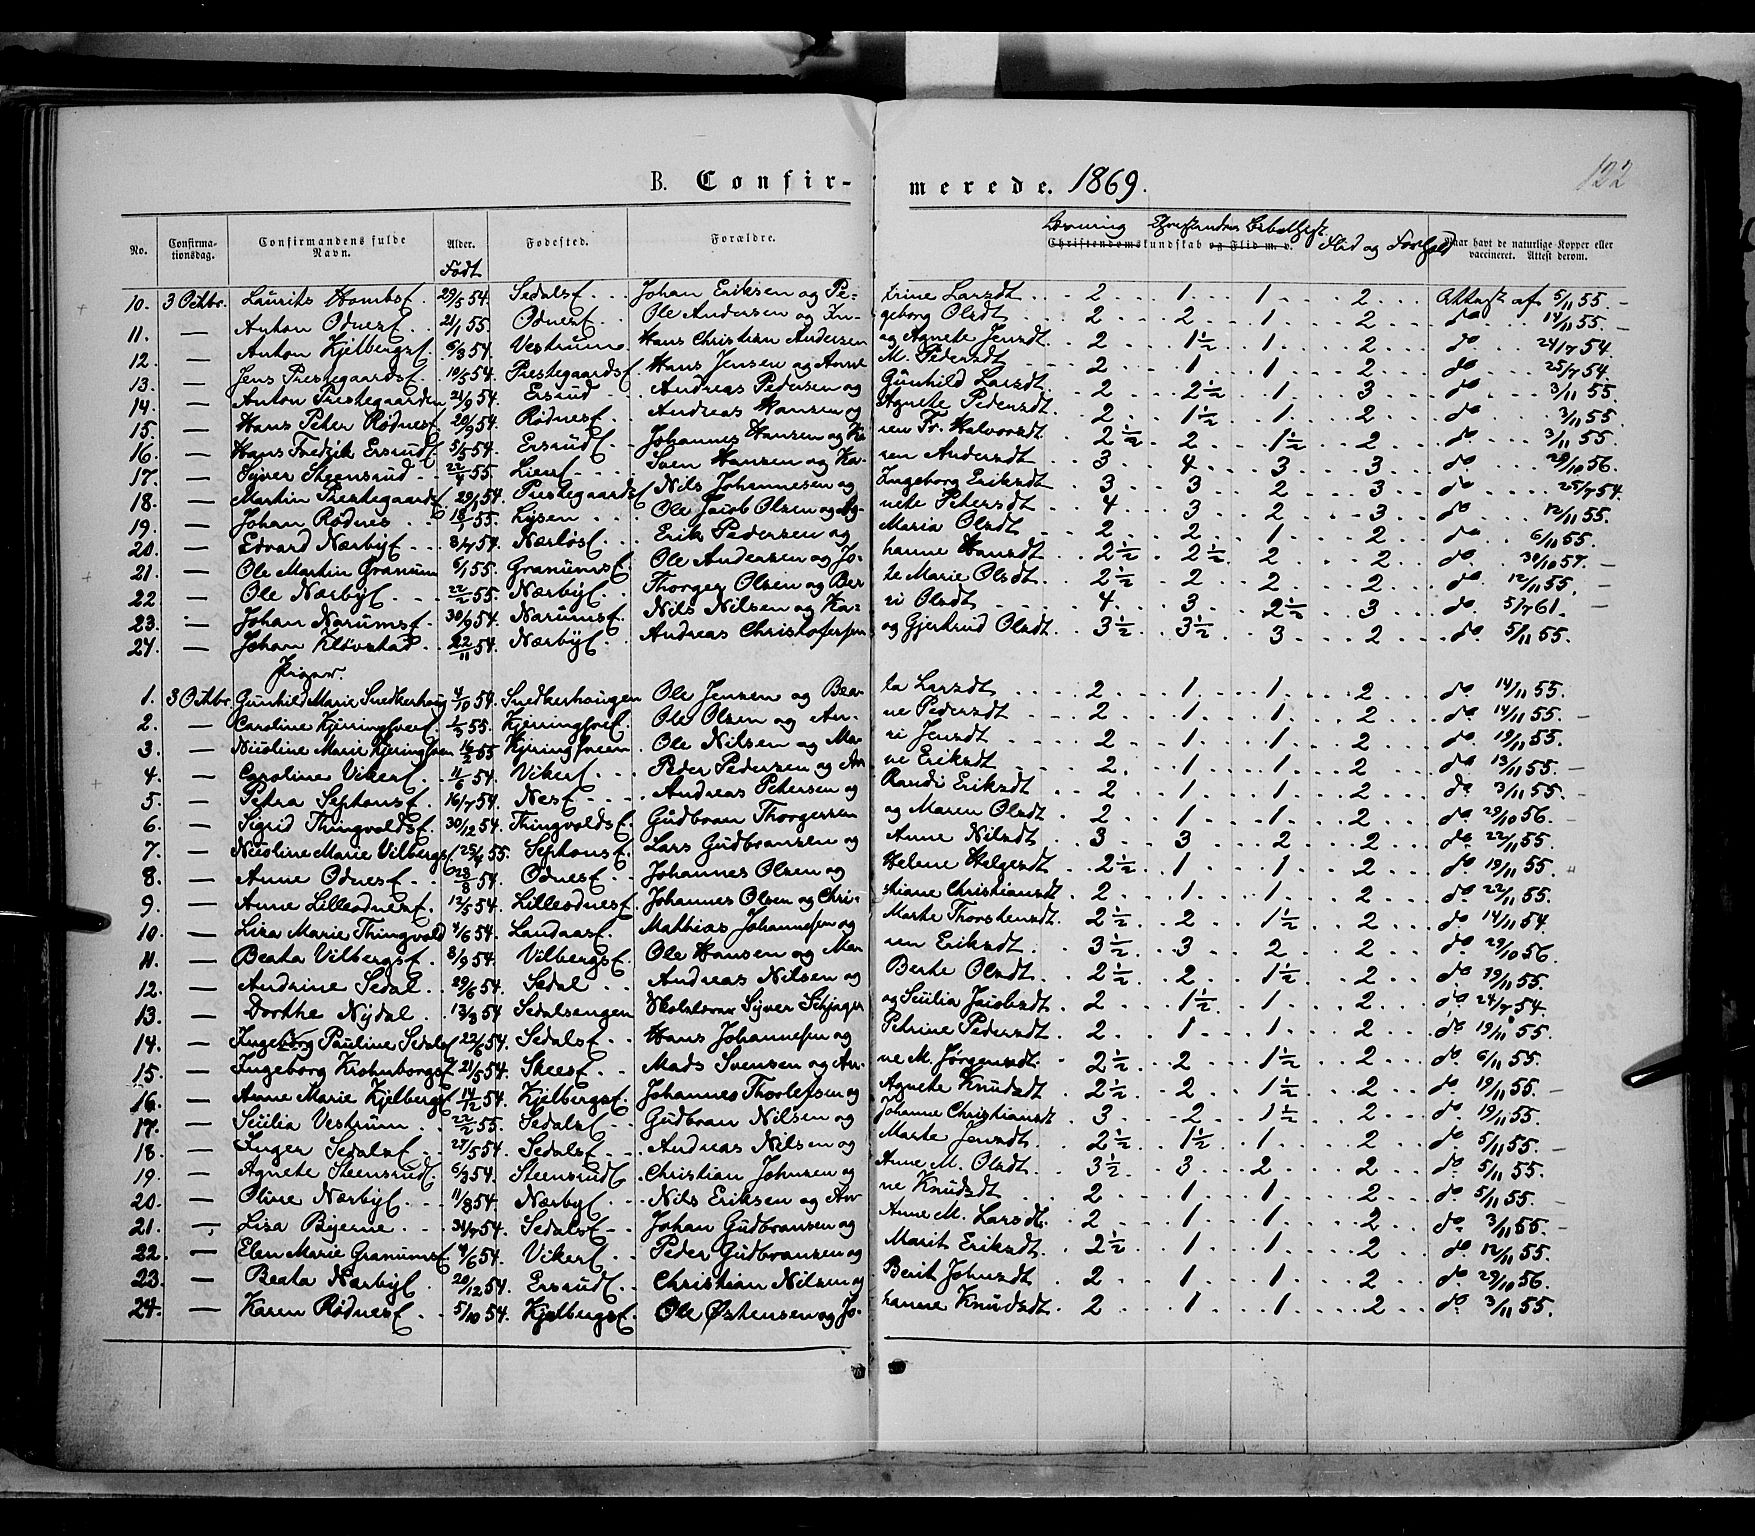 B. Confirmerede. 1869.
122
No. Confirmationsdag. Confirmandens fulde Navn. Alder. Født Fødested. Forældre. Læsning Christendomskundskab og Flid m. v. Flid og Forhold Naar havt de naturlige Kopper eller vaccineret. Attest derom.
10. 3 Octbr. Laurits Hombsf. 29/5 54. Sedalsf. Johan Eriksen og Petrine Larsdt. 2 1 1 2 Attest af 5/11 55.
11. — Anton Odnesf. 21/1 55. Odnesf. Ole Andersen og Ingeborg Olsdt 2 2 1 2 do 14/11 55.
12. — Anton Kjelbergsf. 6/3 54. Vestrum Hans Christian Andersen og Agnete Jensdt 2 1½ 1 2 do 24/7 54.
13. — Jens Prestegaardsf. 10/5 54. Prestegaardsf Hans Jensen og Anne M. Pedersdt 2 1 1 2 do 25/7 54.
14. — Anton Prestegaarden 21/9 54. Ersrud Andreas Pedersen og Gunhild Larsdt 2 2½ 1 3 do 3/11 55.
15. — Hans Peter Rødnesf. 20/9 54. Rødnesf. Andreas Hansen og Agnete Pedersdt. 2 1½ 1 2 do 3/11 55
16. — Hans Fredrik Ersrudf. 5/5 54. Ersrudf. Johannes Hansen og Karen Fr. Halvorsdt 2½ 2 1½ 2 do 3/11 55.
17. — Syver Steensrud 22/4 55. Lienf. Sven Hansen og Karen Andersdt 3 4 3 3 do 29/10 56.
18. — Martin Prestegaardsf. 29/1 54. Prestegaardsf Nils Johannesen og Ingeborg Eriksdt 3 3 2 3 do 25/7 54.
19. — Johan Rødnes 18/1 55. Lysen Ole Jacob Olsen og Agnete Petersdt 4 3 2 3 do 12/11 55.
20. — Edvard Nærbyf. 8/7 54. Nærløsf. Erik Pedersen og Maria Olsdt 2 2 1 2 do 6/11 55.
21. — Ole Martin Granum 6/1 55. Granumsf. Ole Andersen og Johanne Hansdt 2½ 2½ 2 2 do 30/10 57.
22 — Ole Nærbyf. 22/2 55. Nærbyf. Thorger Olsen og Berte Marie Olsdt 2½ 2 2 2 do 12/11 55.
23. — Johan Narumsf. 30/9 54. Narumsf. Nils Nilsen og Kari Olsdt 4 3 2½ 3 do 5/7 61.
24. — Johan Kløvstad 22/11 54. Nærbyf. Andreas Christofersen og Gjertrud Olsdt. 3½ 3½ 3 2 do 5/11 55.
Piger.
1. 3 Octbr. Gunhild Marie Snedkerhaug 4/10 54. Snedkerhaugen Ole Jensen og Beata Larsdt 2 1 1 2 do 14/11 55.
2. — Caroline Kjeringsveef. 1/5 55. Kjerringsveef. Ole Olsen og Anne Pedersdt 2 1 1 2 do 14/11 55.
3. — Nicoline Marie Kjeringsveen 16/2 55 Kjeringsveen Ole Nilsen og Mari Jensdt 2 1 1 2 do 19/11 55.
4. — Caroline Vikerf. 11/6 54. Vikerf. Peder Pedersen og Anne Eriksdt 2 1 1 2 do 13/11 55.
5. — Petra Sephonsf. 16/7 54. Nesf. Andreas Petersen og Randi Eriksdt 2 1 1 2 do 3/11 55.
6. — Sigrid Thingvoldsf. 30/12 54. Thingvoldsf. Gudbran Thorgersen og Maren Olsdt 2 1 1 2 do 29/10 56.
7. — Nicoline Marie Vilbergsf 25/4 55. Sephonsf. Lars Gudbransen og Anne Nilsdt 3 3 2 2 do 22/11 55.
8. — Anne Odnesf. 23/8 54. Odnesf. Johannes Olsen og Helene Helgesdt 2½ 1 1 2 do 19/11 55.
9. — Anne Lilleodnesf. 12/5 54. Lilleodnesf. Johannes Olsen og Christiane Christiansdt 2 1 1 2 do 22/11 55.
10. — Lisa Marie Thingvold 4/6 54. Landaasf. Mathias Johannesen og Marte Thorstensdt. 2½ 2 1½ 2 do 14/11 54.
11. — Beata Vilbergsf. 8/9 54. Vilbergsf. Ole Hansen og Maren Eriksdt 3½ 3 2 2 do 29/10 56.
12. — Andrine Sedal 29/6 54. Sedal Andreas Nilsen og Berte Olsdt 2½ 2 1½ 2 do 19/11 55.
13. — Dorthe Nydal 13/8 54 Sedalsengen Skolelærer Syver Schjager og Sicilia Jacobsdt 2 1½ 1 2 do 24/7 54.
14. — Ingeborg Pauline Sedalsf 22/6 54. Sedalsf. Hans Johannesen og Petrine Pedersdt 2 1 1 2 do 19/11 55.
15. — Ingeborg Krohnborgsf. 21/5 54. Skeesf. Mads Svensen og Anne M. Jørgensdt. 2½ 2 1½ 2 do 6/11 55.
16. — Anne Marie Kjelbergsf 14/12 54. Kjelbergsf. Johannes Thorlefsen og Agnete Knudsdt 2½ 2 1½ 2 do 19/11 55.
17. — Sicilia Vestrum 22/2 55. Sedalsf. Gudbran Nilsen og Johanne Christiansdt 3 2 1½ 2 do 19/11 55.
18 — Inger Sedalsf. 27/5 54. Sedalsf. Andreas Nilsen og Marte Jensdt. 2½ 1½ 1 2 do 5/11 55.
19. — Agnete Steensrudf. 6/3 54. Steensrudf. Christian Johnsen og Anne M. Olsdt 3½ 3 2 2 do 5/11 55.
20. — Oline Nærbyf. 11/8 54. Nærbyf. Nils Eriksen og Anne Knudsdt 2 1 1 2 do 5/11 55.
21. — Lisa Bjerne 31/7 54. Sedalsf. Johan Gudbransen og Anne M. Larsdt. 2 1 1 2 do 3/11 55.
22. — Elen Marie Granumsf. 4/6 54. Vikerf. Peder Gudbransen og Marit Eriksdt. 2½ 1 1 2 do 12/11 55.
23. — Beata Nærbyf. 20/12 54. Ersrudf. Christian Nilsen og Berit Johnsdt 2 1 1 2 do 29/10 56.
24. — Karen Rødnesf. 5/10 54. Kjelbergsf. Ole Østensen og Johanne Knudsdt. 2 1 1 2 do 3/11 55.